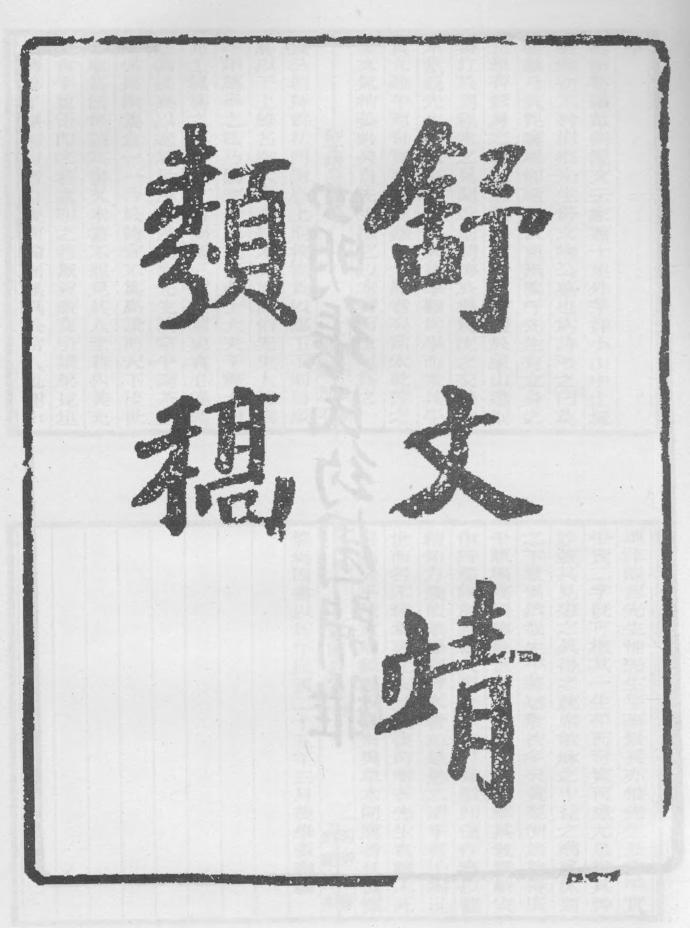 舒文靖
類稿